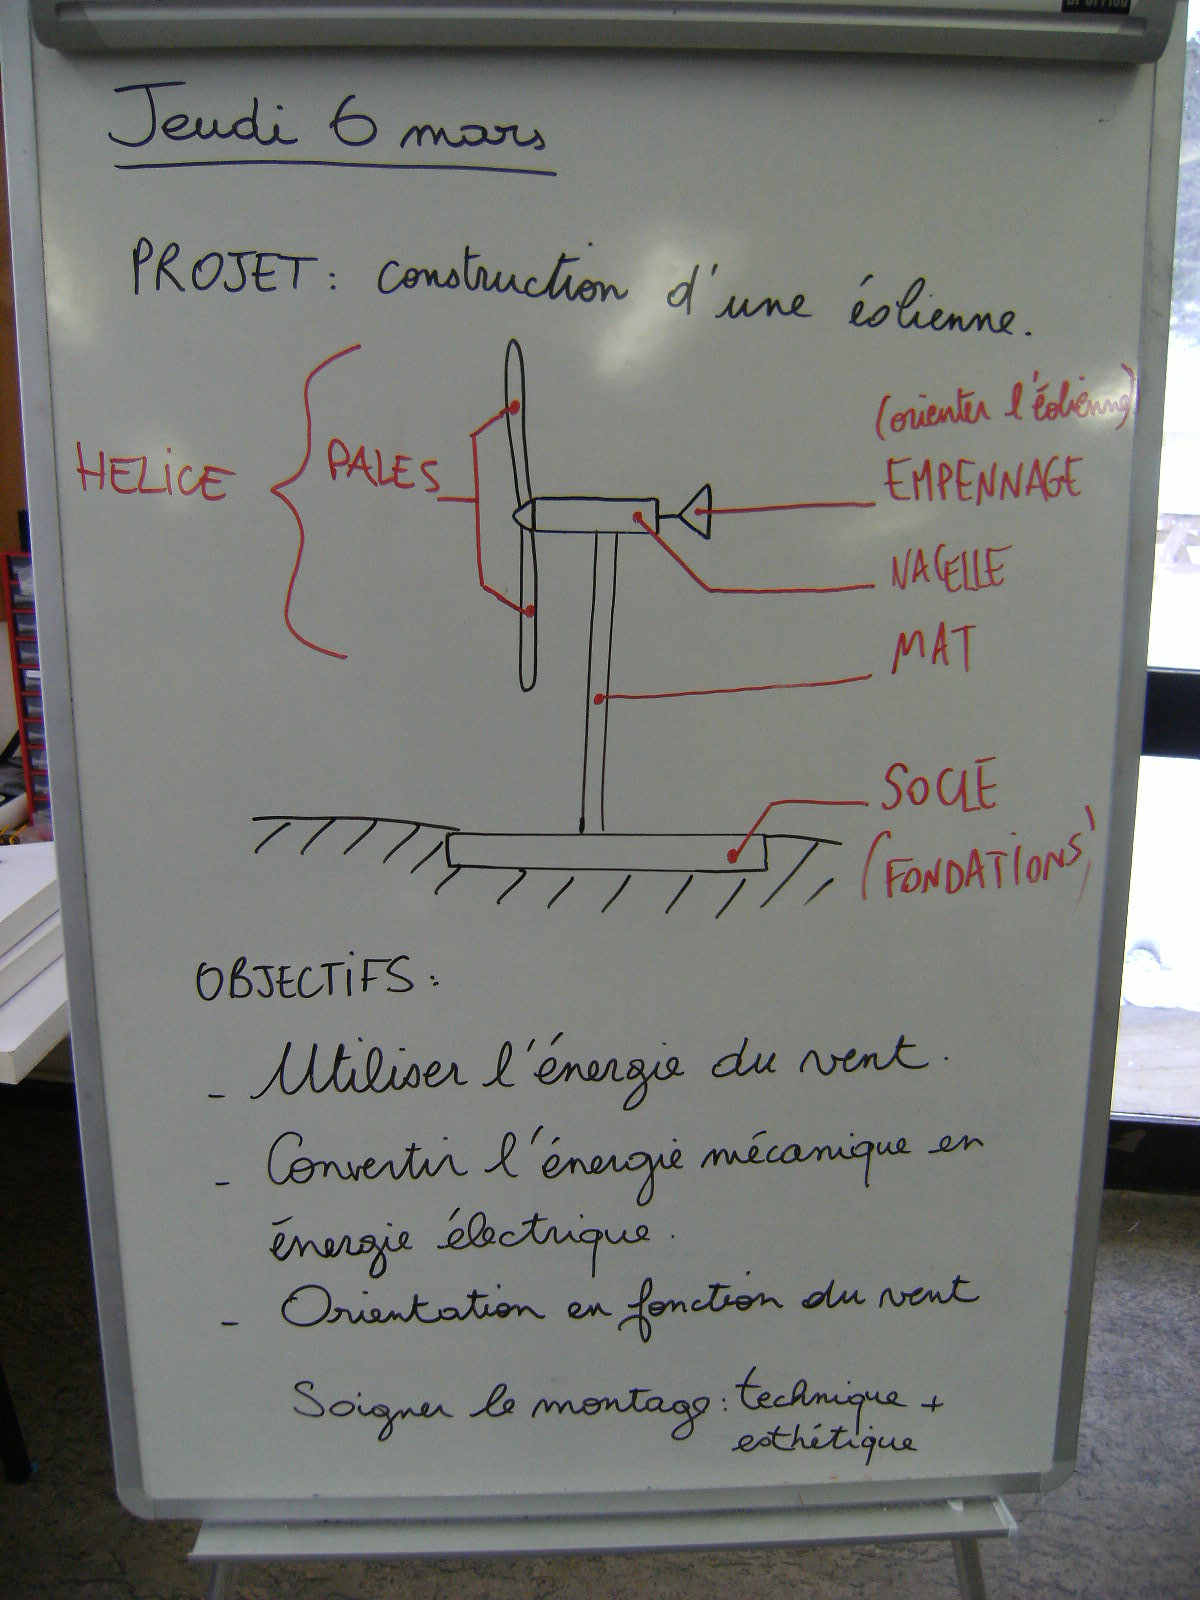 Jeudi 6 mars
PROJET : construction d'une éolienne.
(orienter l'éolienne)
HELICE
PALES
EMPENNAGE
NACELLE
MAT
SOCLE
(FONDATIONS)
OBJECTIFS :
- Utiliser l'énergie du vent.
- Convertir l'énergie mécanique en
énergie électrique.
- Orientation en fonction du vent
Soigner le montage : technique +
esthétique